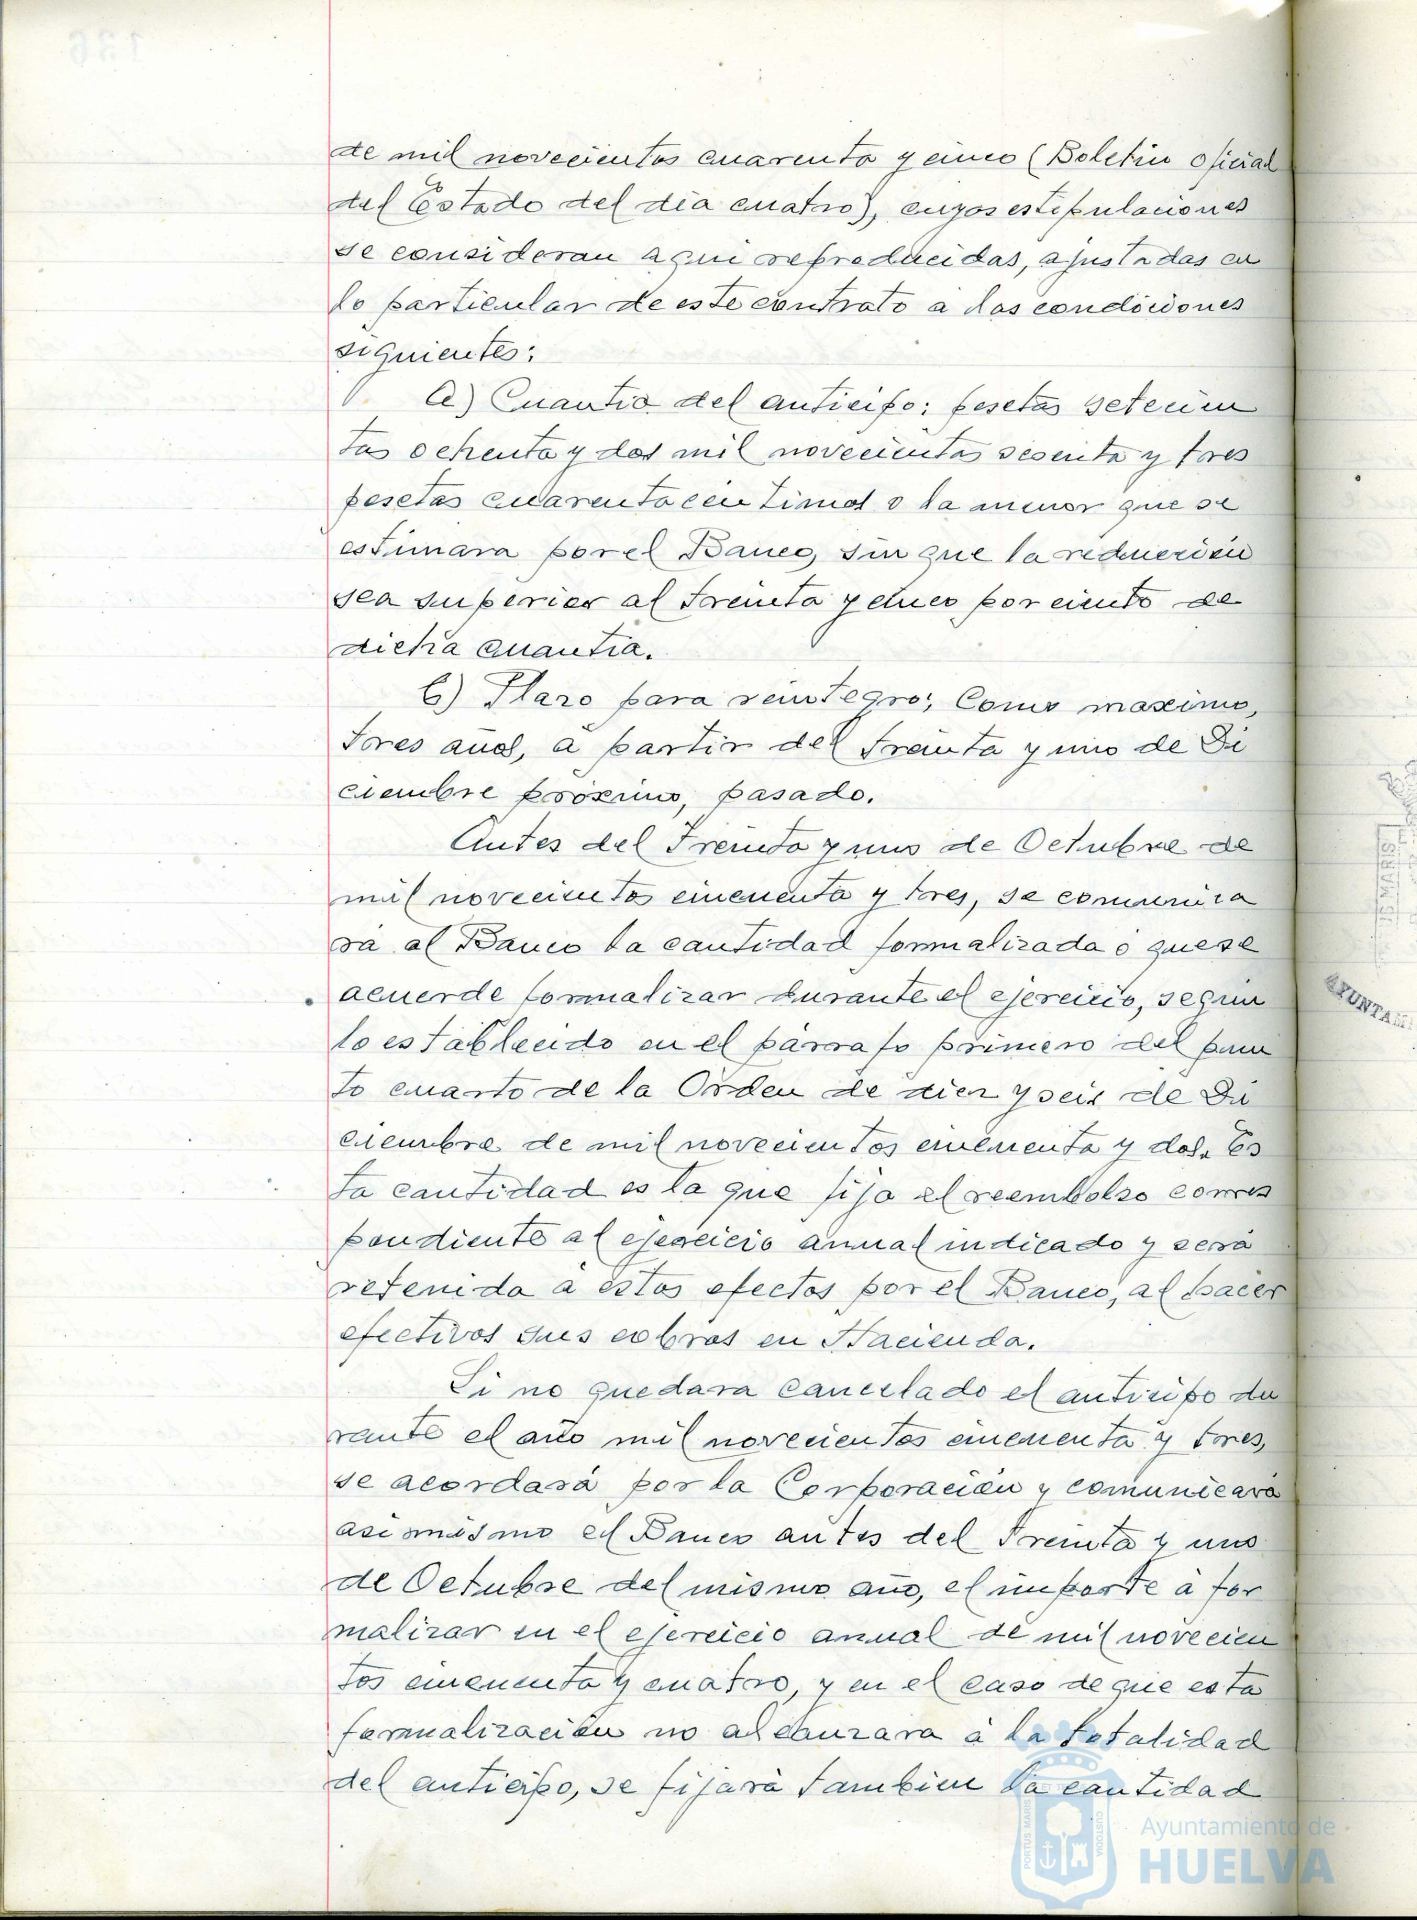 de mil novecientos cuarenta y cinco (Boletin oficial
del Estado del dia cuatro), cuyas estipulaciones
se consideran aqui reproducidas, ajustadas en
lo particular de este contrato á las condiciones
siguientes:
a) Cuantia del anticipo: pesetas setecien
tas ochenta y dos mil novecientas sesenta y tres
pesetas cuarenta centimos o la menor que se
estimara por el Banco, sin que la reducción
sea superior al treinta y cinco por ciento de
dicha cuantia.
b) Plazo para reintegro; Como maximo,
tres años, á partir del treinta y uno de Di
ciembre próximo, pasado.
Antes del treinta y uno de Octubre de
mil novecientos cincuenta y tres, se comunica
rá al Banco la cantidad formalizada ó que se
acuerde formalizar durante el ejercicio, según
lo establecido en el párrafo primero del pun
to cuarto de la Orden de diez y seis de Di
ciembre de mil novecientos cincuenta y dos. Es
ta cantidad es la que fija el reembolso corres
pondiente al ejercicio anual indicado y será
retenida á estos efectos por el Banco, al hacer
efectivos sus cobros en Hacienda.
Si no quedara cancelado el anticipo du
rante el año mil novecientos cincuenta y tres,
se acordará por la Corporación y comunicará
asimismo al Banco antes del treinta y uno
de Octubre del mismo año, el importe á for
malizar en el ejercicio anual de mil novecien
tos cincuenta y cuatro, y en el caso de que esta
formalización no alcanzara á la totalidad
del anticipo, se fijará tambien la cantidad
136
AYUNTAM
PORTUS MARIS
CUSTODIA
Ayuntamiento de
HUELVA